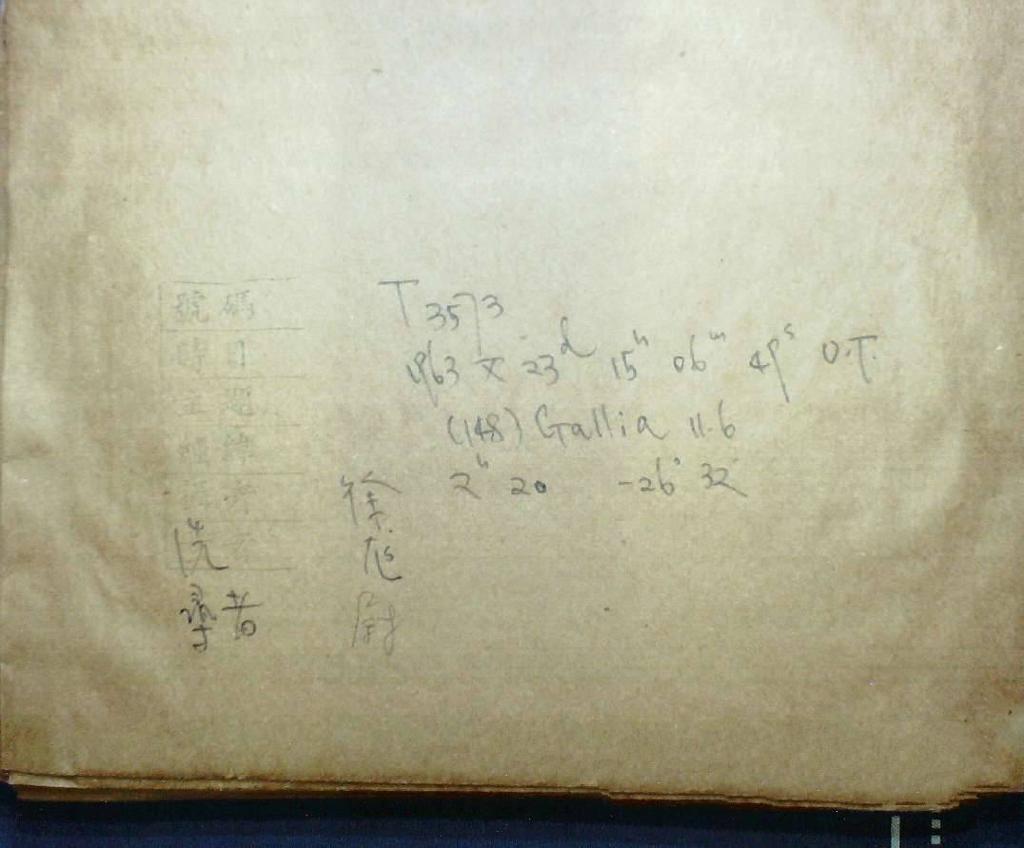 號碼
時日
T 3573
1963 X 23ᵈ 15ʰ 06ᵐ 49ˢ U.T.
(148) Gallia 11.6
2ʰ 20 -26° 32'
徐
洗
學者
尉